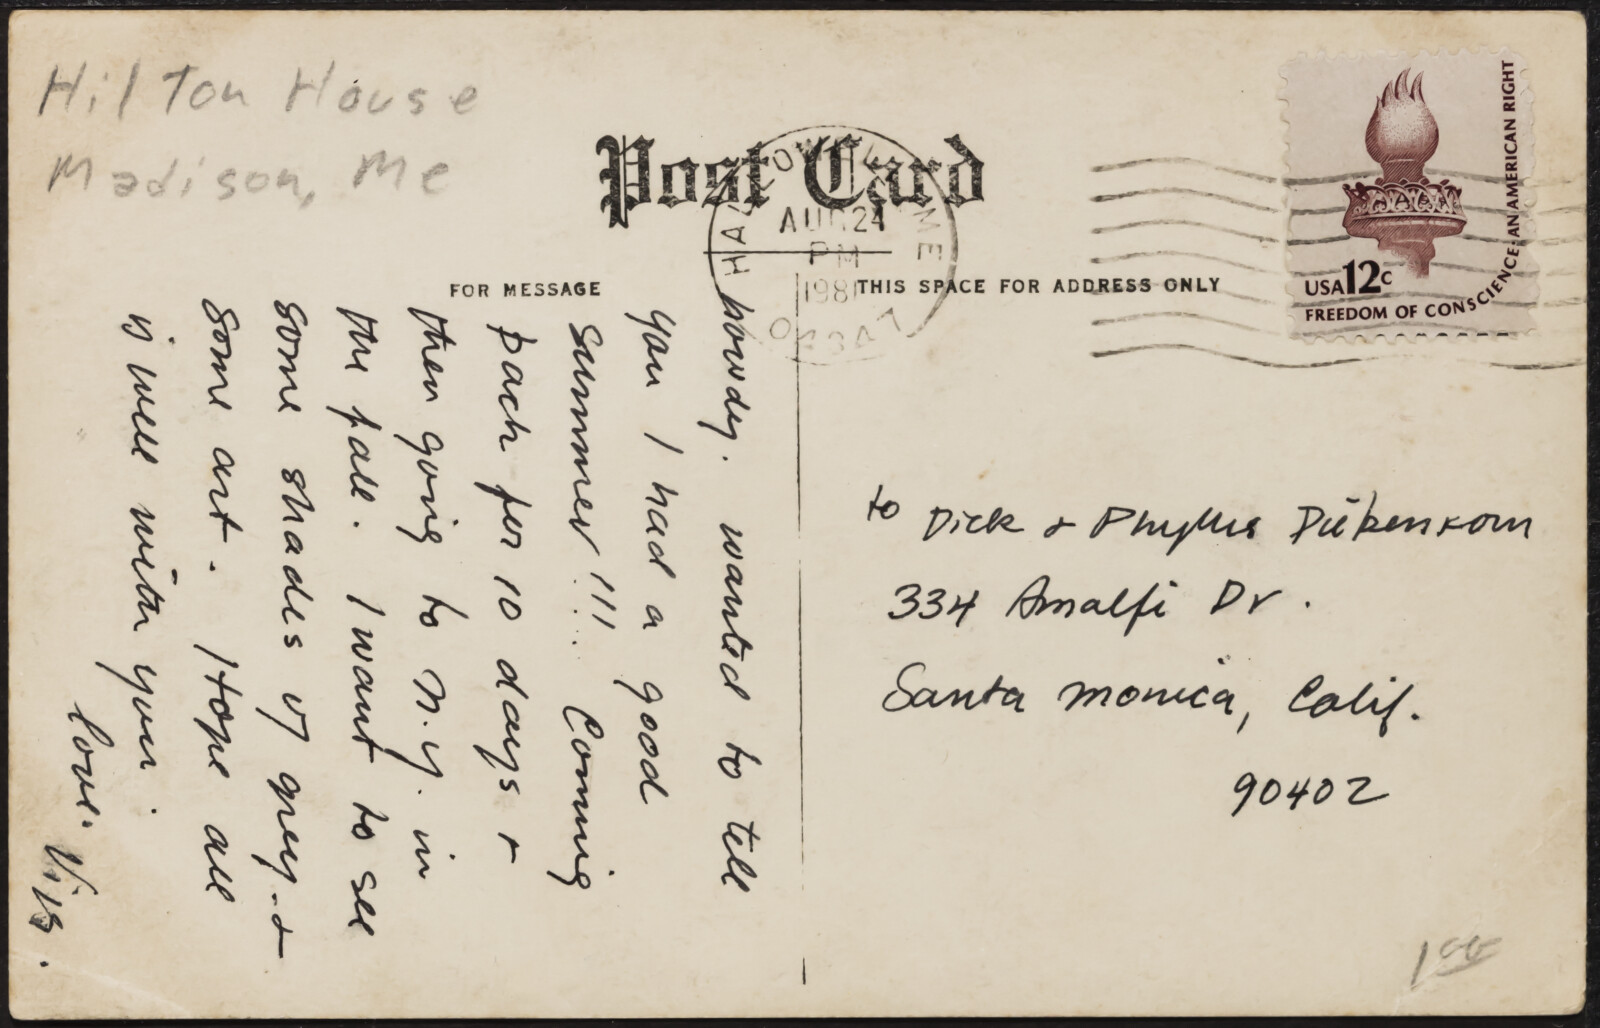 Hilton House
Madison, Me
Post Card
HALLOWELL ME
AUG 24
PM
1981
04347
FOR MESSAGE
THIS SPACE FOR ADDRESS ONLY
USA 12c
FREEDOM OF CONSCIENCE-AN AMERICAN RIGHT
howdy. wanted to tell
you I had a good
summer!!! Coming
back for 10 days +
then going to N.Y. in
the fall. I want to see
some shades of grey. &
some art. Hope all
is well with you.
love.
to Dick & Phyllis Diebenkorn
334 Amalfi Dr.
Santa Monica, Calif.
90402
1 00